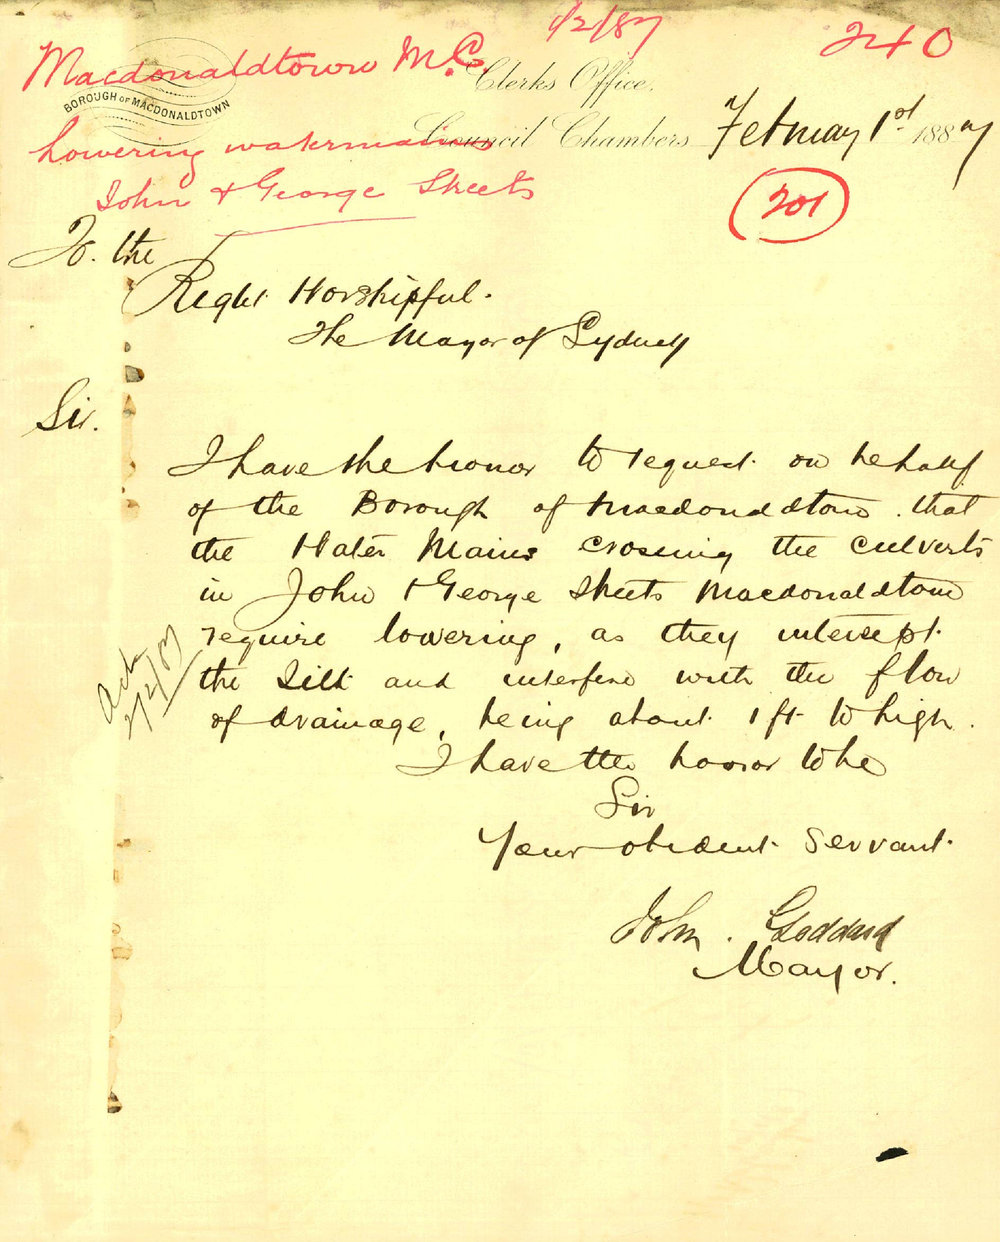 1/2/87
240
Macdonaldtown M.C.
Clerks Office,
BOROUGH OF MACDONALDTOWN
Council Chambers February 1st 1887
Lowering watermains
John & George Streets
201
To. the
Right Worshipful.
The Mayor of Sydney
Sir.
I have the honor to request on behalf
of the Borough of Macdonaldtown. that
the Water Mains crossing the culverts
in John & George Streets Macdonaldtown
require lowering, as they intersept.
the Silt and interfere with the flow
of drainage, being about 1 ft to high.
2/2/87
I have the honor to be
Sir
Your obedient. Servant.
John. Goddard
Mayor.